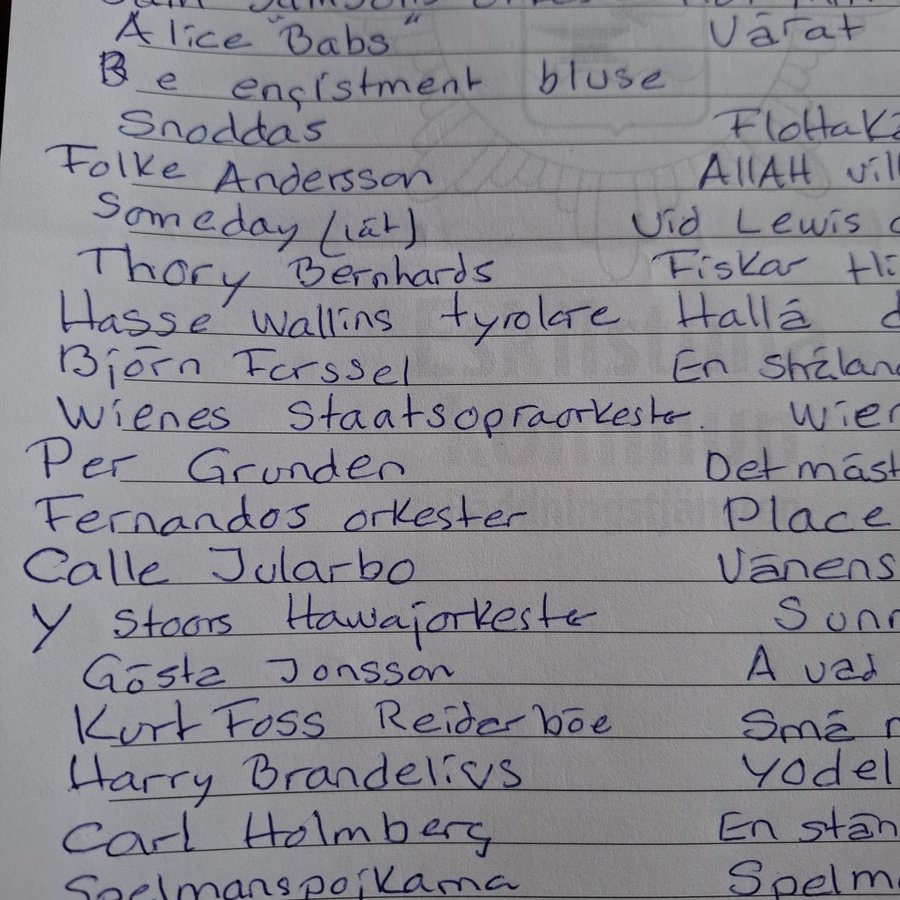 Alice "Babs" Vårat
Be engistment bluse
Snoddas Flottaka
Folke Andersson AllAH vill
Someday (låt) Vid Lewis
Thory Bernhards Fiskar
Hasse Wallins tyrolare Hallå d
Björn Forssel En stråland
Wienes Staatsopraorkester. Wien
Per Grunden Det mäst
Fernandos orkester Place
Calle Jularbo Vänens
Y Stoors Hawajorkester Sunn
Gösta Jonsson A vad
Kurt Foss Reiderböe Små
Harry Brandelius Yodel
Carl Holmberg En stän
Spelmanspojkarna Spelm